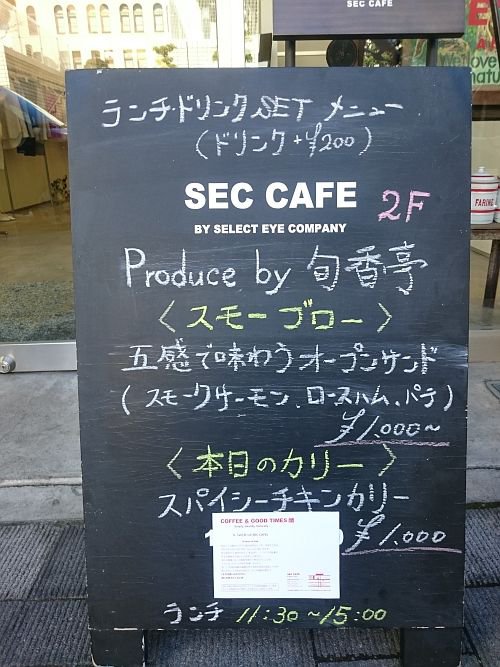 SEC CAFE
ランチ・ドリンクSET メニュー
(ドリンク+¥200)
SEC CAFE 2F
BY SELECT EYE COMPANY
Produce by 旬香亭
〈スモーブロー〉
五感で味わうオープンサンド
(スモークサーモン、ロースハム、パテ)
¥1,000~
〈本日のカリー〉
スパイシーチキンカリー
¥1,000
COFFEE & GOOD TIMES
ランチ 11:30~15:00